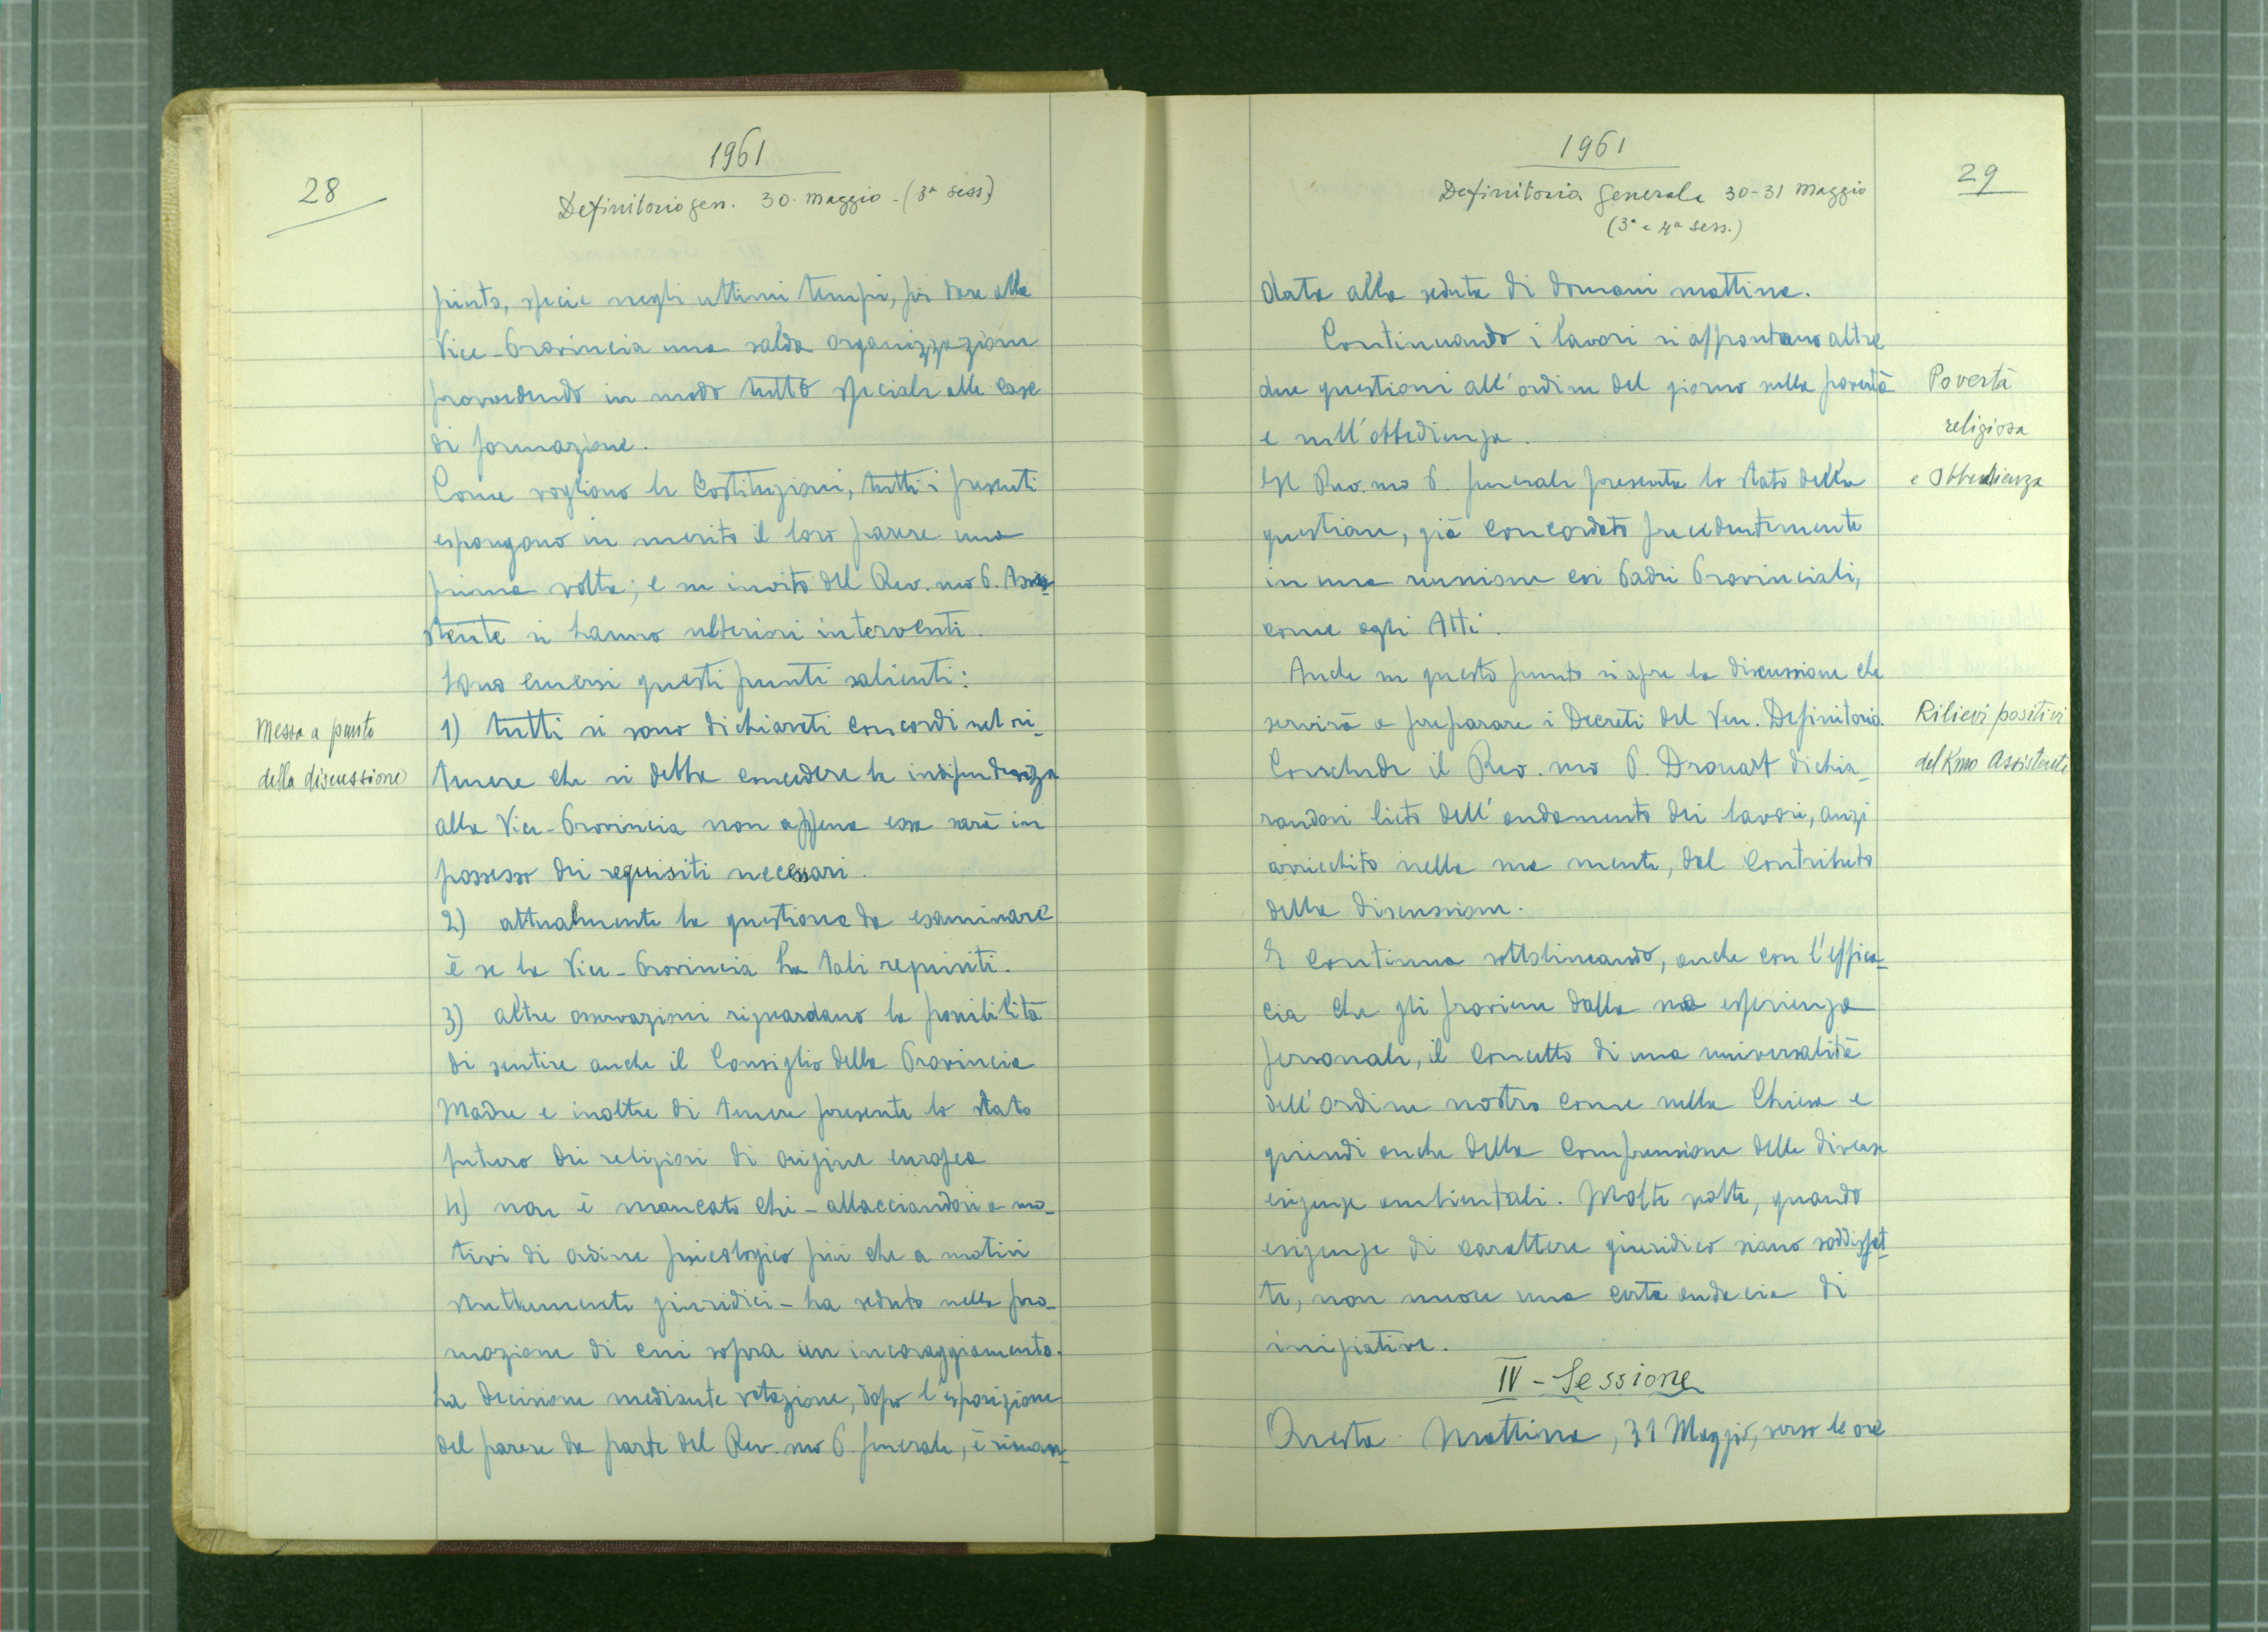 28
1961
Definitorio gen. 30. Maggio - (3ª sess.)
punto, specie negli ultimi tempi, per dare alla
Vice-Provincia una salda organizzazione
provvedendo in modo tutto speciale alle case
di formazione.
Come vogliono le Costituzioni, tutti i presenti
espongono in merito il loro parere una
prima volta; e su invito del Rev.mo P. Assi-
stente si hanno ulteriori interventi.
Sono emersi questi punti salienti:
Messa a punto
della discussione
1) tutti si sono dichiarati concordi nel ri-
tenere che si debba concedere la indipendenza
alla Vice-Provincia non appena essa sarà in
possesso dei requisiti necessari.
2) attualmente la questione da esaminare
è se la Vice-Provincia ha tali requisiti.
3) altre osservazioni riguardano la possibilità
di sentire anche il Consiglio della Provincia
Madre e inoltre di tenere presente lo stato
futuro dei religiosi di origine europea
4) non è mancato chi - allacciandosi a mo-
tivi di ordine psicologico più che a motivi
strettamente giuridici - ha veduto nella pro-
mozione di cui sopra un incoraggiamento.
La decisione mediante votazione, dopo l'esposizione
del parere da parte del Rev.mo P. Generale, è riman-
1961
Definitorio Generale 30-31 Maggio
(3ª e 4ª sess.)
29
data alla seduta di domani mattina.
Continuando i lavori si affrontano altre
due questioni all'ordine del giorno sulla povertà
e sull'obbedienza.
Povertà
religiosa
e Obbedienza
Il Rev.mo P. Generale presenta lo stato della
questione, già concordato precedentemente
in una riunione coi Padri Provinciali,
come agli Atti.
Anche su questo punto si apre la discussione che
servirà a preparare i Decreti del Ven. Definitorio.
Rilievi positivi
del Rmo Assistente
Conclude il Rev.mo P. Drouart dichia-
randosi lieto dell'andamento dei lavori, anzi
arricchito nella sua mente, dal contributo
della discussione.
E continua sottolineando, anche con l'effica-
cia che gli proviene dalla sua esperienza
personale, il concetto di una universalità
dell'Ordine nostro come nella Chiesa e
quindi anche della comprensione delle diverse
esigenze ambientali. Molte volte, quando
esigenze di carattere giuridico siano soddisfat-
te, non nuoce una certa audacia di
iniziative.
IV - Sessione
Questa Mattina, 31 Maggio, verso le ore